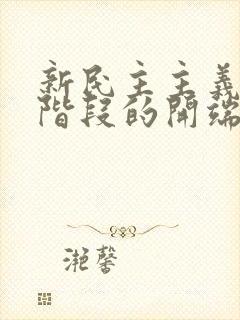 新民主主義
階段的開端
滟馨